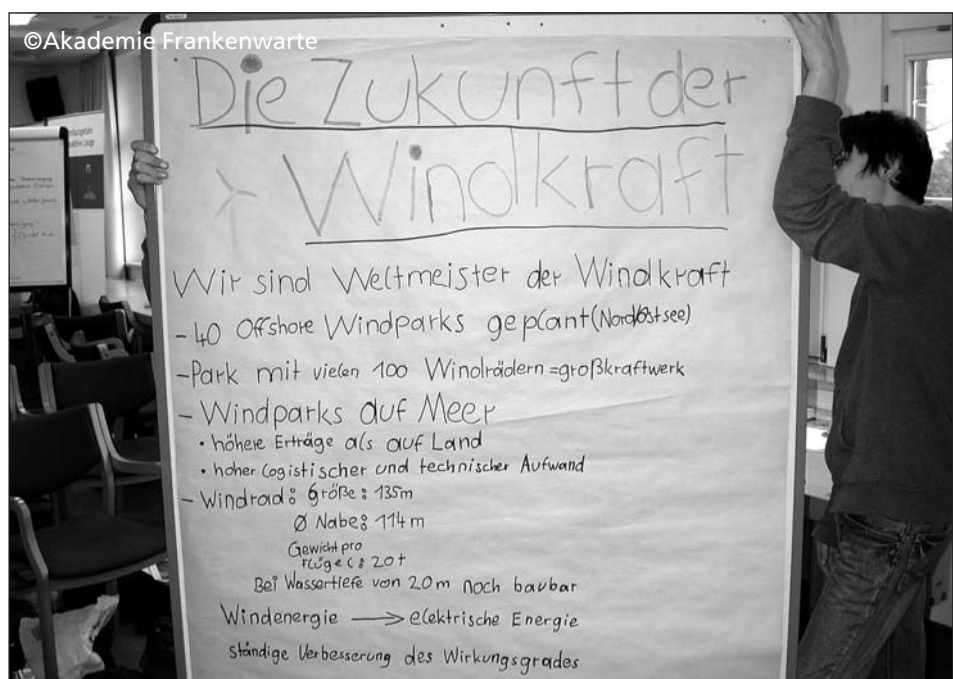 ©Akademie Frankenwarte
Die Zukunft der
Windkraft
Wir sind Weltmeister der Windkraft
- 40 Offshore Windparks geplant (Nord/Ostsee)
- Park mit vielen 100 Windrädern = großkraftwerk
- Windparks auf Meer
• höhere Erträge als auf Land
• hoher logistischer und technischer Aufwand
- Windrad: Größe: 135m
Ø Nabe: 114m
Gewicht pro
Flügel: 20t
Bei Wassertiefe von 20m noch baubar
Windenergie → elektrische Energie
ständige Verbesserung des Wirkungsgrades